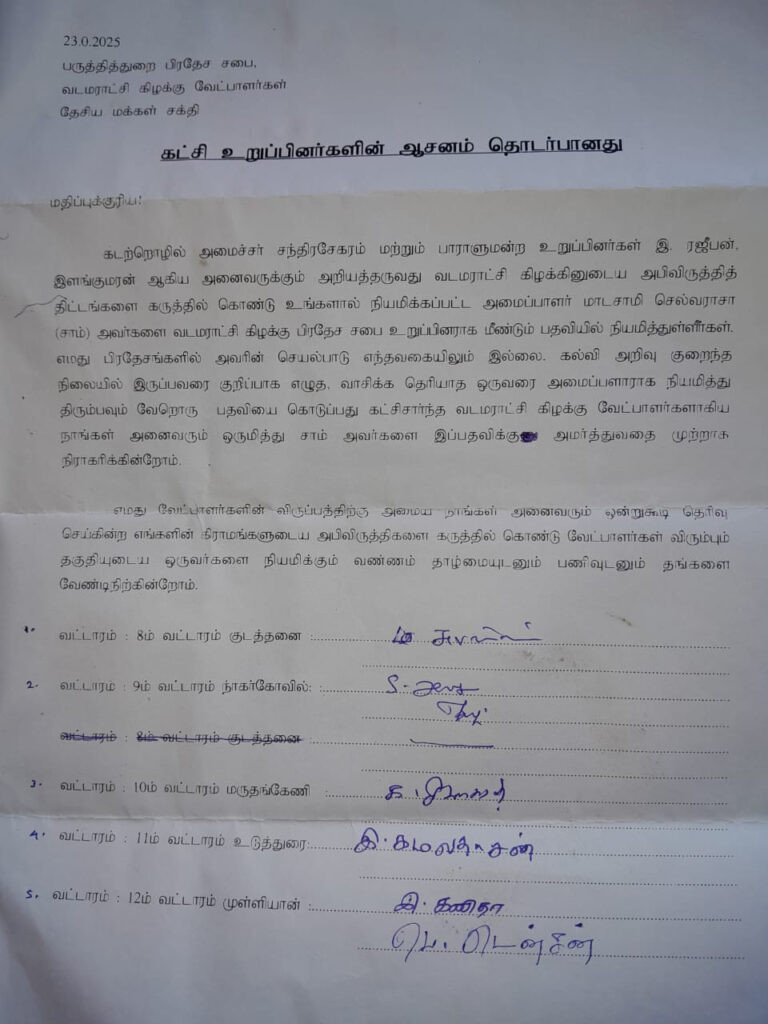 23.0.2025
பருத்தித்துறை பிரதேச சபை,
வடமராட்சி கிழக்கு வேட்பாளர்கள்
தேசிய மக்கள் சக்தி
கட்சி உறுப்பினர்களின் ஆசனம் தொடர்பானது
மதிப்புக்குரிய!
கடற்றொழில் அமைச்சர் சந்திரசேகரம் மற்றும் பாராளுமன்ற உறுப்பினர்கள் இ. ரஜீபன்,
இளங்குமரன் ஆகிய அனைவருக்கும் அறியத்தருவது வடமராட்சி கிழக்கினுடைய அபிவிருத்தித்
திட்டங்களை கருத்தில் கொண்டு உங்களால் நியமிக்கப்பட்ட அமைப்பாளர் மாடசாமி செல்வராசா
(சாம்) அவர்களை வடமராட்சி கிழக்கு பிரதேச சபை உறுப்பினராக மீண்டும் பதவியில் நியமித்துள்ளீர்கள்.
எமது பிரதேசங்களில் அவரின் செயல்பாடு எந்தவகையிலும் இல்லை. கல்வி அறிவு குறைந்த
நிலையில் இருப்பவரை குறிப்பாக எழுத, வாசிக்க தெரியாத ஒருவரை அமைப்பளாராக நியமித்து
திரும்பவும் வேறொரு பதவியை கொடுப்பது கட்சிசார்ந்த வடமராட்சி கிழக்கு வேட்பாளர்களாகிய
நாங்கள் அனைவரும் ஒருமித்து சாம் அவர்களை இப்பதவிக்கு அமர்த்துவதை முற்றாக
நிராகரிக்கின்றோம்.
எமது வேட்பாளர்களின் விருப்பத்திற்கு அமைய நாங்கள் அனைவரும் ஒன்றுகூடி தெரிவு
செய்கின்ற எங்களின் கிராமங்களுடைய அபிவிருத்திகளை கருத்தில் கொண்டு வேட்பாளர்கள் விரும்பும்
தகுதியுடைய ஒருவர்களை நியமிக்கும் வண்ணம் தாழ்மையுடனும் பணிவுடனும் தங்களை
வேண்டிநிற்கின்றோம்.
1. வட்டாரம் : 8ம் வட்டாரம் குடத்தனை :
2. வட்டாரம் : 9ம் வட்டாரம் நாகர்கோவில்:
வட்டாரம் : 8ம் வட்டாரம் குடத்தனை :
3. வட்டாரம் : 10ம் வட்டாரம் மருதங்கேணி :
4. வட்டாரம் : 11ம் வட்டாரம் உடுத்துரை: இ. கமலதாசன்
5. வட்டாரம் : 12ம் வட்டாரம் முள்ளியான் :
பெ. டென்சன்